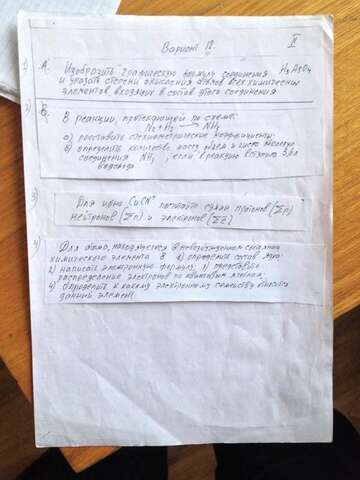 Вариант 12. II
1) А. Изобразить графическую формулу соединения H3AsO4
и указать степени окисления атомов всех химических
элементов, входящих в состав этого соединения
2) Б. В реакции, протекающей по схеме:
N2 + H2 → NH3
а) расставить стехиометрические коэффициенты
б) определить количество, массу, объем и число молекул
соединения NH3, если в реакцию вступило
водорода
3) Для иона CuCN+ посчитать сумму протонов (Σp)
нейтронов (Σn) и электронов (Σē)
4) Для атома, находящегося в невозбужденном состоянии
химического элемента В 1) определить состав ядра
2) написать электронную формулу; 3) представить
распределение электронов по квантовым ячейкам
4) определить к какому электронному семейству относится
данный элемент